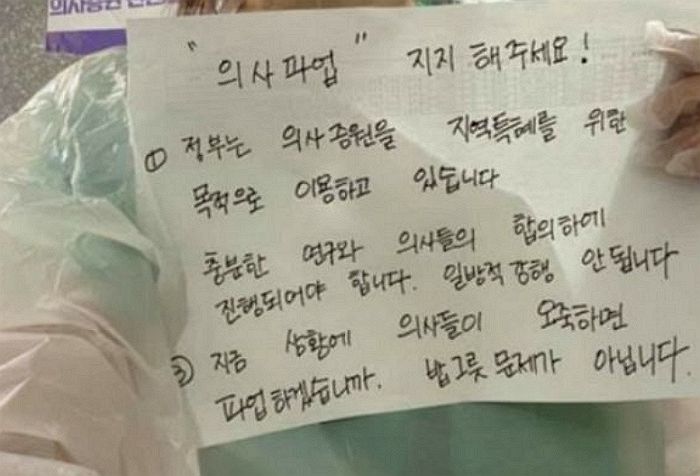 의사증원
"의사파업" 지지 해주세요!
① 정부는 의사증원을 지역특혜를 위한
목적으로 이용하고 있습니다
충분한 연구와 의사들의 합의하에
진행되어야 합니다. 일방적 강행 안됩니다
② 지금 상황에 의사들이 오죽하면
파업하겠습니까. 밥그릇 문제가 아닙니다.